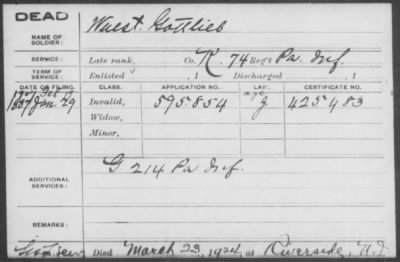 DEAD
NAME OF SOLDIER: Wuest, Gottlieb
SERVICE: Late rank, Co. K, 74 Reg't Pa. Inf.
TERM OF SERVICE: Enlisted , 1 Discharged , 1
DATE OF FILING. CLASS. APPLICATION NO. LAW. CERTIFICATE NO.
1887 Jan. 29 Invalid, 595854 J 425483
Widow,
Minor,
ADDITIONAL SERVICES: G 214 Pa. Inf.
REMARKS:
Died March 23, 1924, at Riverside, N.J.